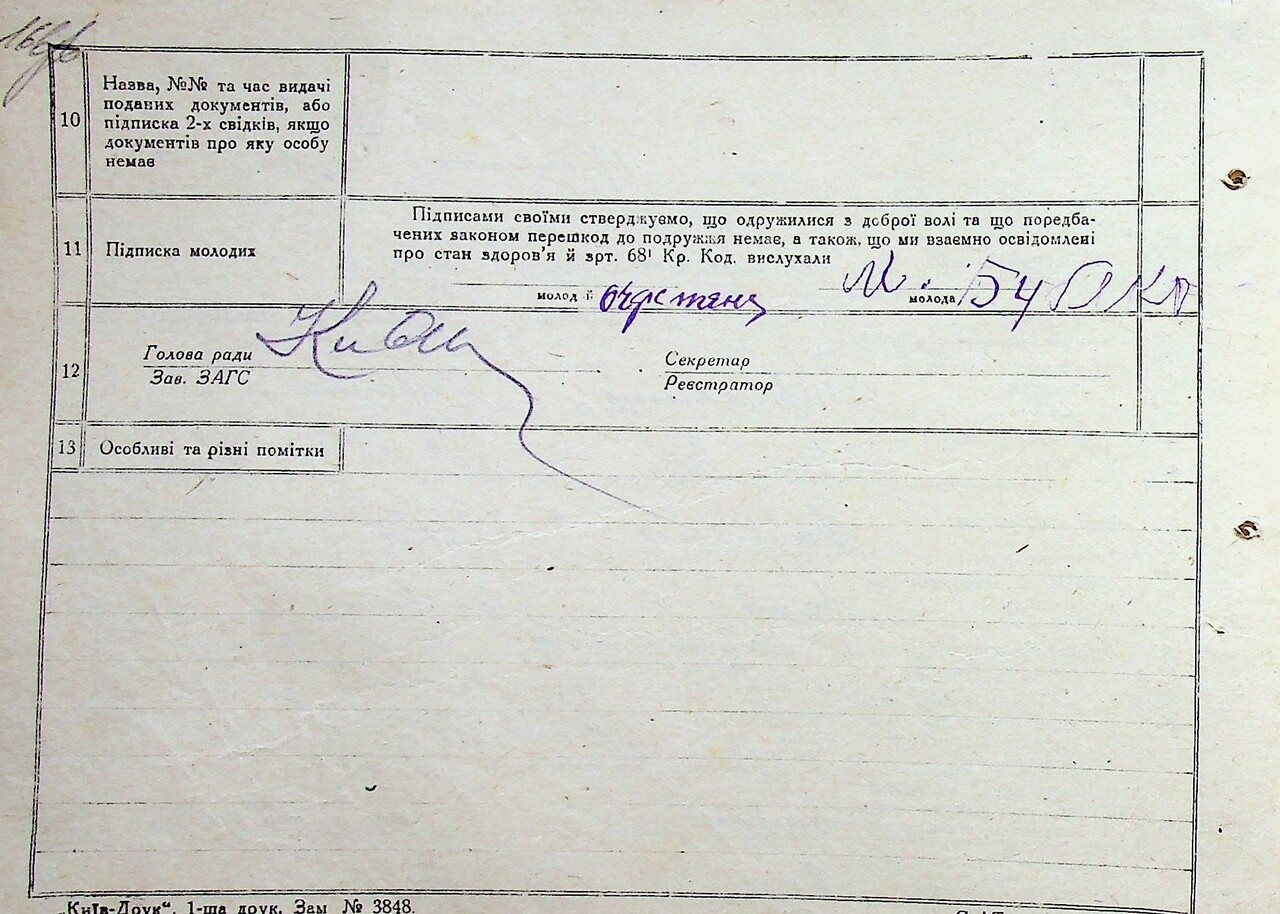 10
Назва, №№ та час видачі
поданих документів, або
підписка 2-х свідків, якщо
документів про яку особу
немає
11
Підписка молодих
Підписами своїми стверджуємо, що одружилися з доброї волі та що поредба-
чених законом перешкод до подружжя немає, а також, що ми взаємно освідомлені
про стан здоров'я й зрт. 68¹ Кр. Код. вислухали
молод й
молода
12
Голова ради
Зав. ЗАГС
Секретар
Реєстратор
13
Особливі та різні помітки
„Київ-Друк“, 1-ша друк. Зам № 3848.